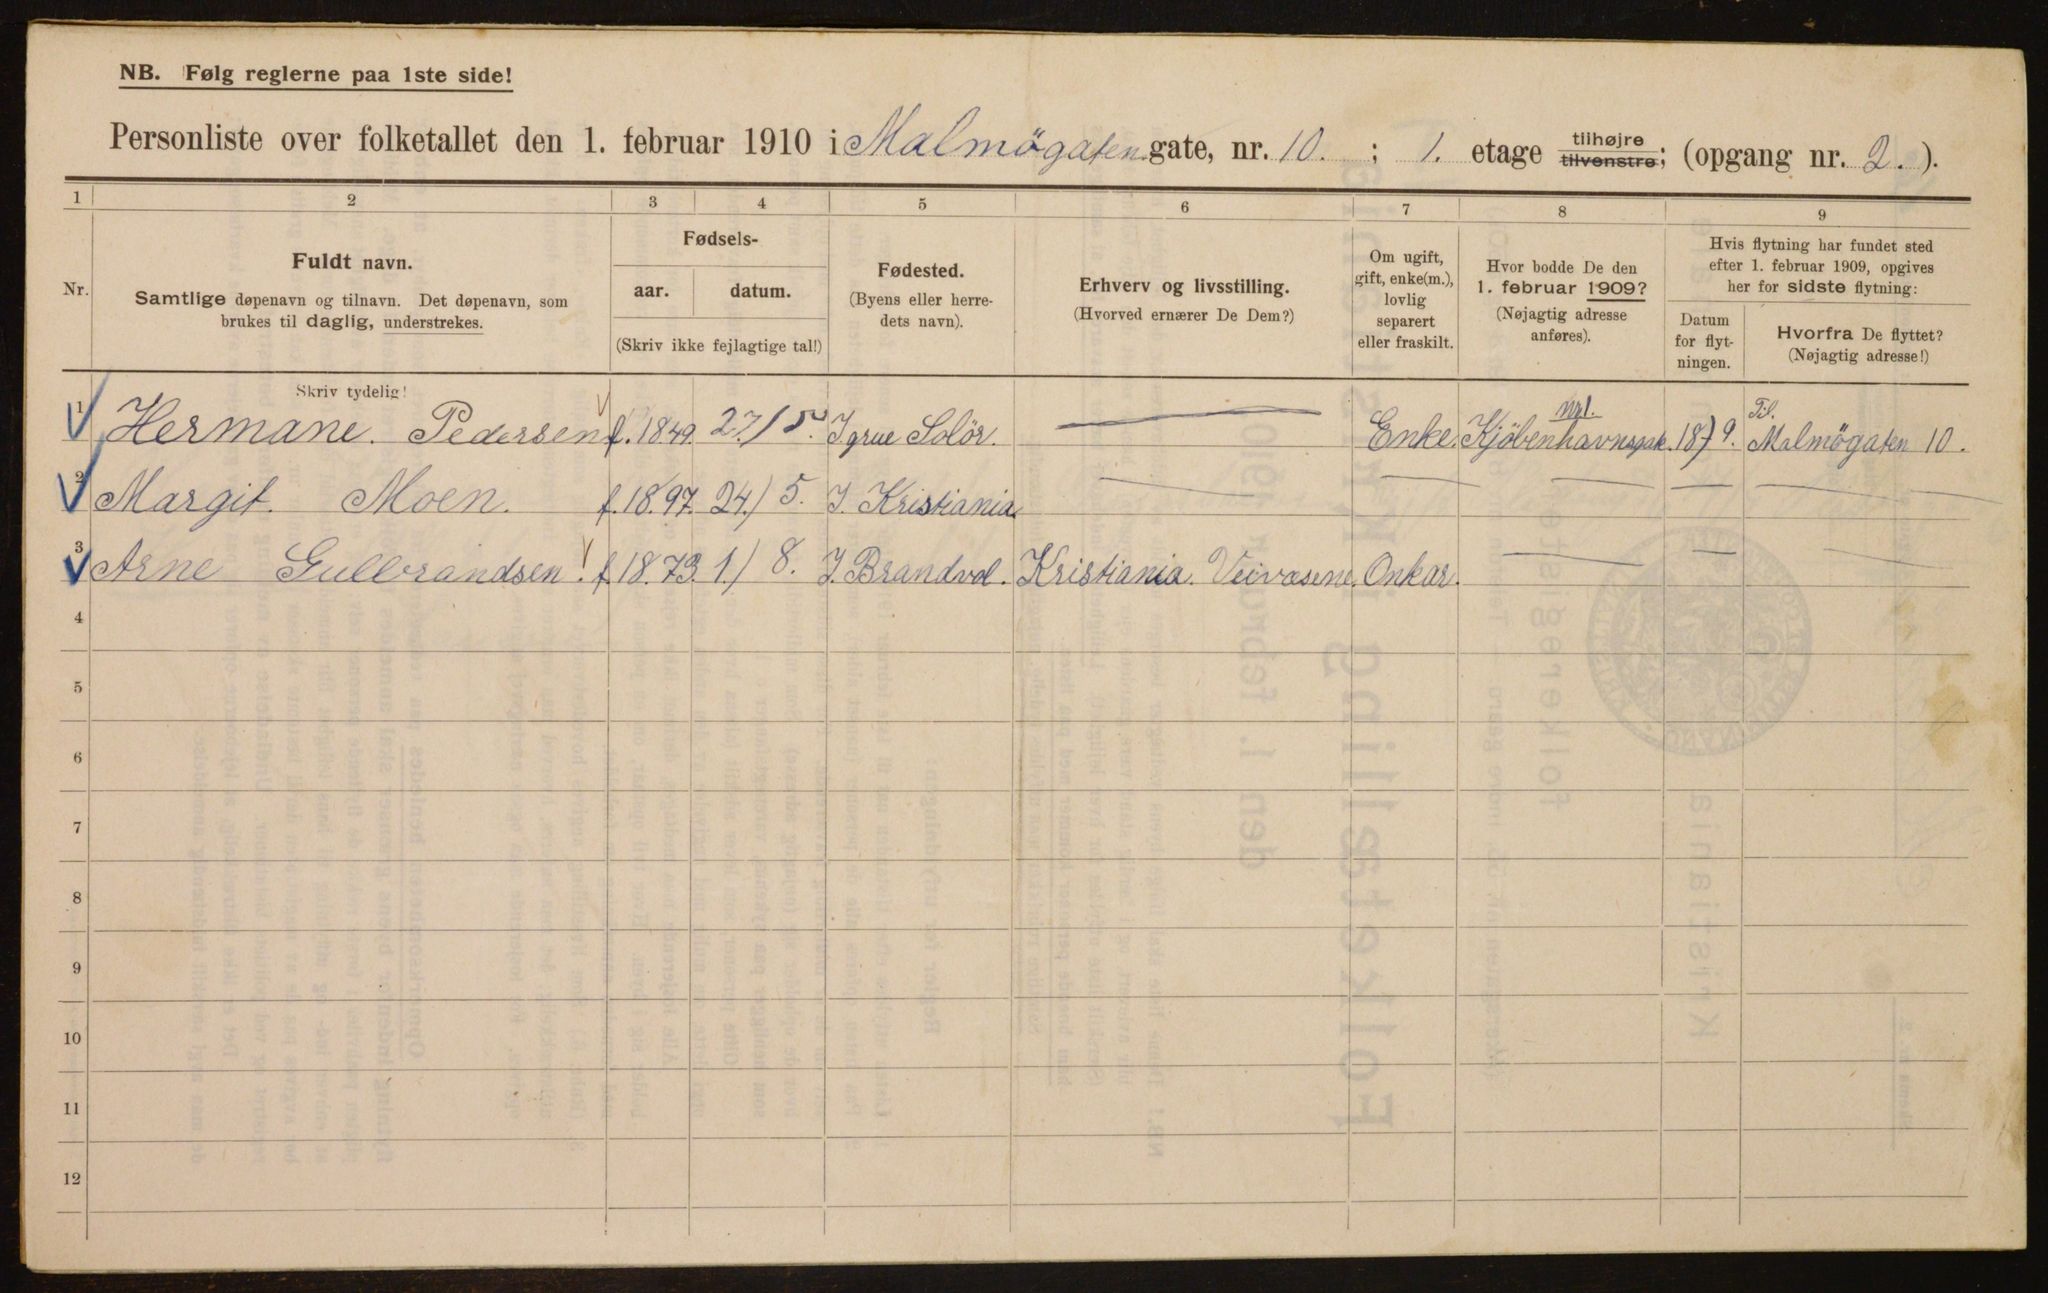 NB. Følg reglerne paa 1ste side!
Personliste over folketallet den 1. februar 1910 i Malmøgaten gate, nr. 10. ; 1. etage tilhøjre tilvenstre; (opgang nr. 2. ).
1 2 3 4 5 6 7 8 9
Nr.
Fuldt navn.
Samtlige døpenavn og tilnavn. Det døpenavn, som
brukes til daglig, understrekes.
Fødsels-
aar. datum.
(Skriv ikke fejlagtige tal!)
Fødested.
(Byens eller herre-
dets navn).
Erhverv og livsstilling.
(Hvorved ernærer De Dem?)
Om ugift,
gift, enke(m.),
lovlig
separert
eller fraskilt.
Hvor bodde De den
1. februar 1909?
(Nøjagtig adresse
anføres).
Hvis flytning har fundet sted
efter 1. februar 1909, opgives
her for sidste flytning:
Datum
for flyt-
ningen.
Hvorfra De flyttet?
(Nøjagtig adresse!)
Skriv tydelig!
1 Hermane. Pedersen f. 1849. 27./5. I grue Solör. Enke. Kjöbenhavnsgk. nr1. 18/9. Til. Malmögaten 10.
2 Margit. Moen. f. 18.97. 24./5. I. Kristiania.
3 Arne Gulbrandsen. f. 18.73. 1./8. I. Brandvol. Kristiania. Veivæsene. Onkar.
4
5
6
7
8
9
10
11
12